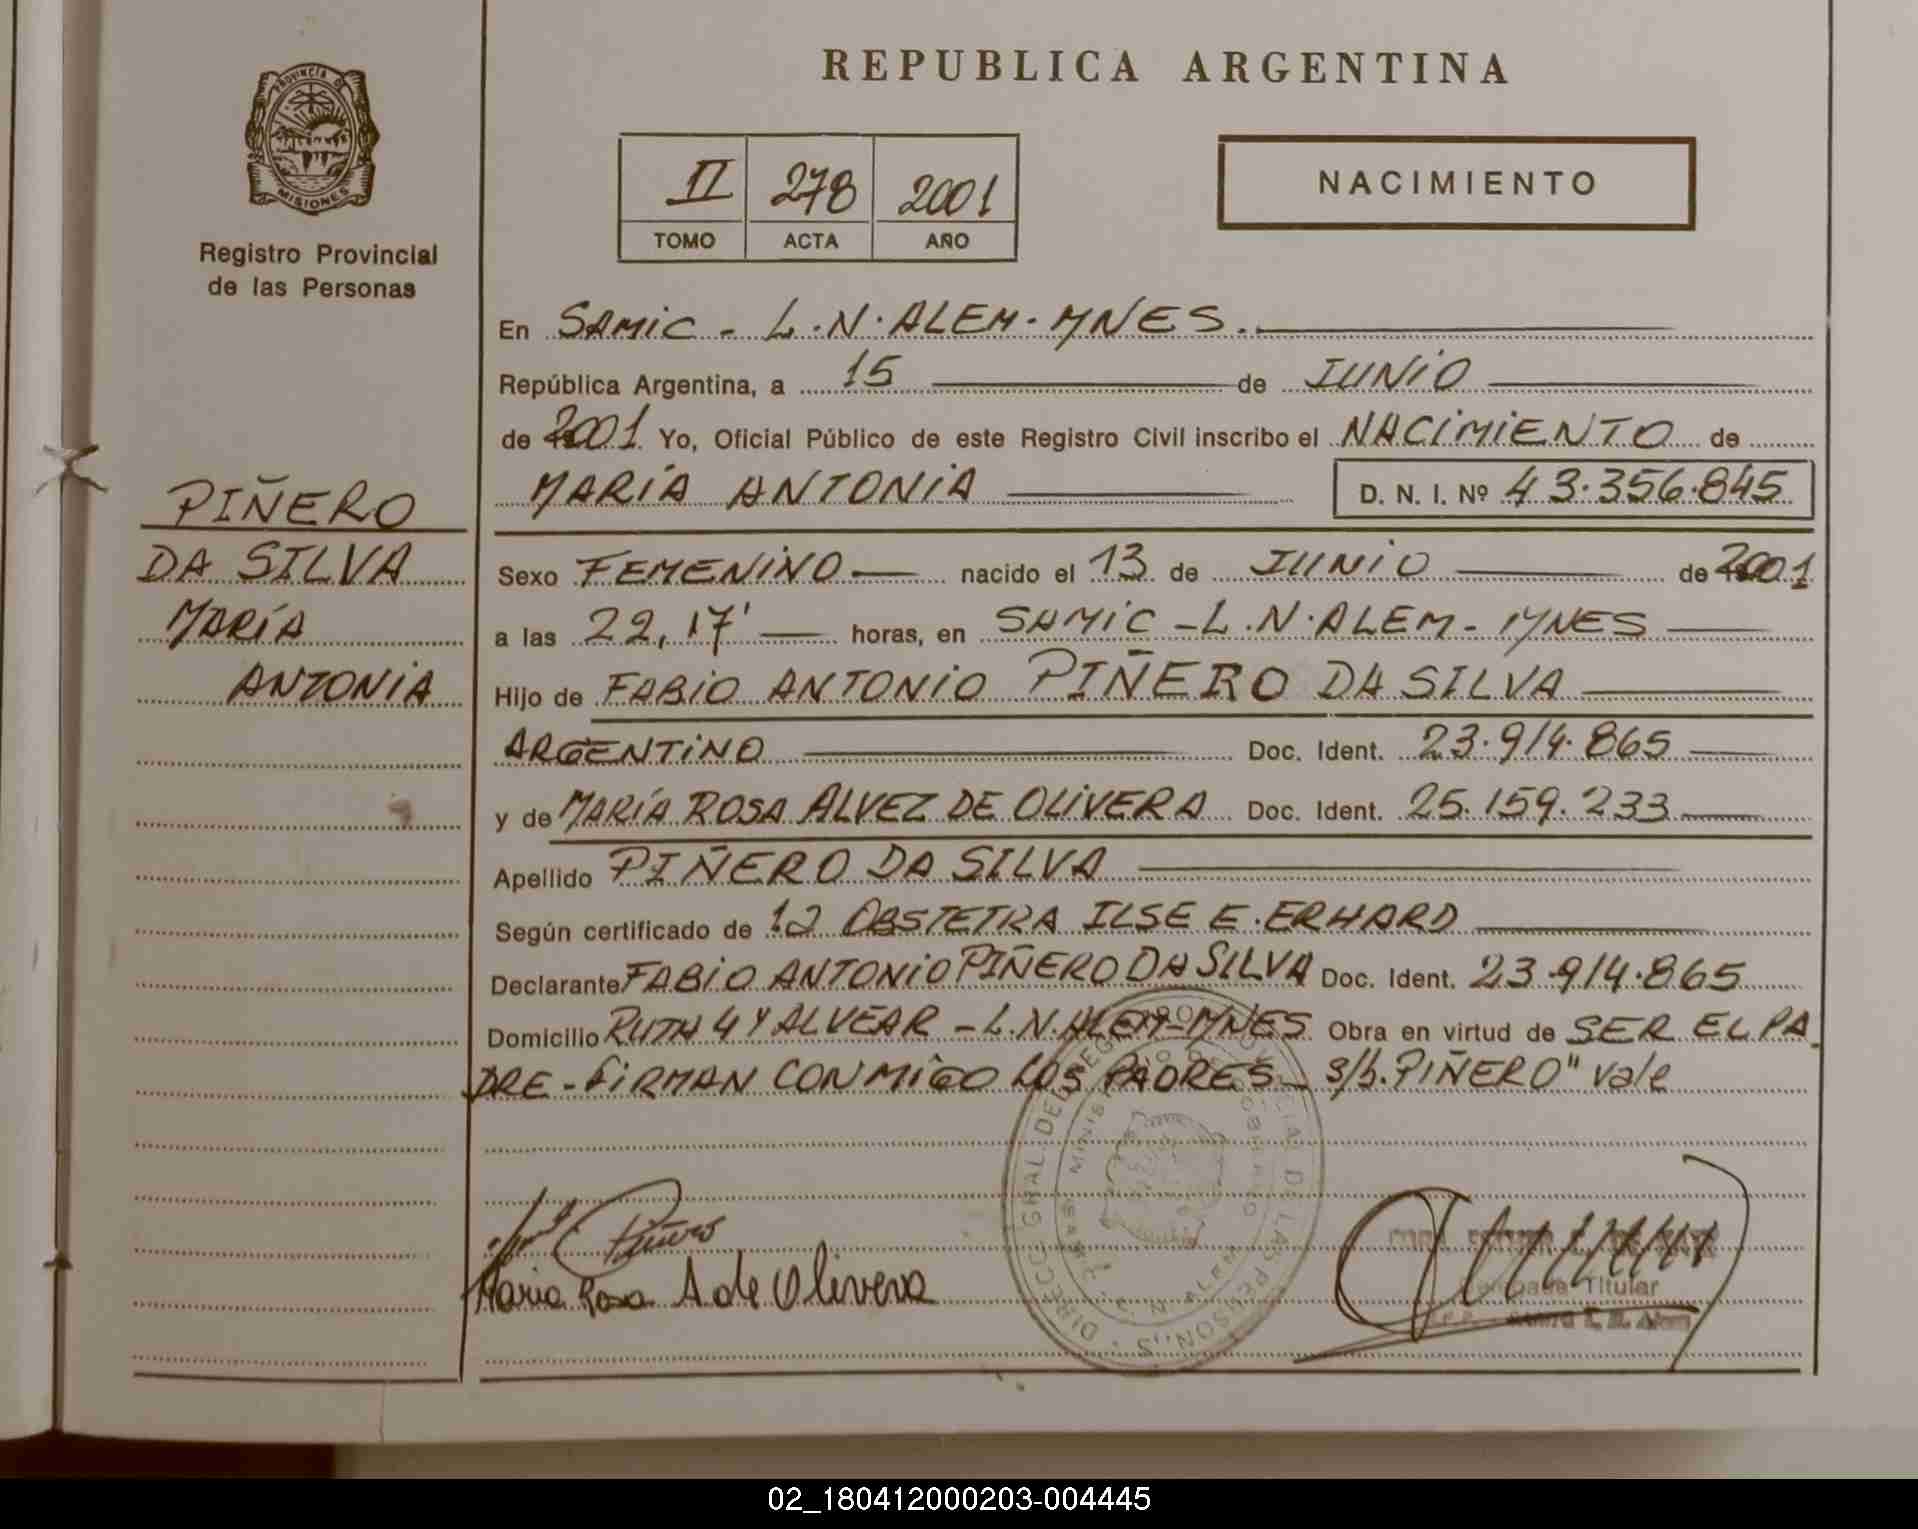 PROVINCIA DE
MISIONES
Registro Provincial
de las Personas
PIÑERO
DA SILVA
MARÍA
ANTONIA
REPUBLICA ARGENTINA
II 278 2001
TOMO ACTA AÑO
NACIMIENTO
En SAMIC - L.N. ALEM - MNES.
República Argentina, a 15 de JUNIO
de 2001 Yo, Oficial Público de este Registro Civil inscribo el NACIMIENTO de
MARÍA ANTONIA D. N. I. Nº 43.356.845
Sexo FEMENINO nacido el 13 de JUNIO de 2001
a las 22,17' horas, en SAMIC - L.N. ALEM - MNES
Hijo de FABIO ANTONIO PIÑERO DA SILVA
ARGENTINO Doc. Ident. 23.914.865
y de MARÍA ROSA ALVEZ DE OLIVERA Doc. Ident. 25.159.233
Apellido PIÑERO DA SILVA
Según certificado de la OBSTETRA ILSE E. ERHARD
Declarante FABIO ANTONIO PIÑERO DA SILVA Doc. Ident. 23.914.865
Domicilio RUTH 4 Y ALVEAR - L.N. ALEM - MNES Obra en virtud de SER EL PA
DRE - FIRMAN CONMIGO LOS PADRES - s/b. PIÑERO" vale
Piñero
Maria Rosa A de Olivera
DIRECC. GRAL. DEL REG. PROVINCIAL DE LAS PERSONAS
L. N. ALEM
Titular
02_180412000203-004445